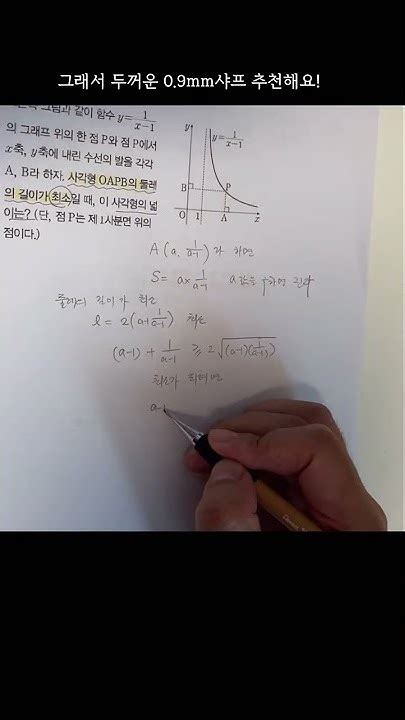 그래서 두꺼운 0.9mm샤프 추천해요!
그림과 같이 함수 y=1/(x-1)
의 그래프 위의 한 점 P와 점 P에서
x축, y축에 내린 수선의 발을 각각
A, B라 하자. 사각형 OAPB의 둘레
의 길이가 최소일 때, 이 사각형의 넓
이는? (단, 점 P는 제1사분면 위의
점이다.)
y
y=1/(x-1)
B
P
O
1
A
x
A (a, 1/(a-1)) 라 하면
S= a× 1/(a-1) a값을 구하면 된다
둘레의 길이가 최소
l = 2(a+1/(a-1)) 최소
(a-1) + 1/(a-1) ≥ 2√((a-1)(1/(a-1)))
최소가 되려면
a-1